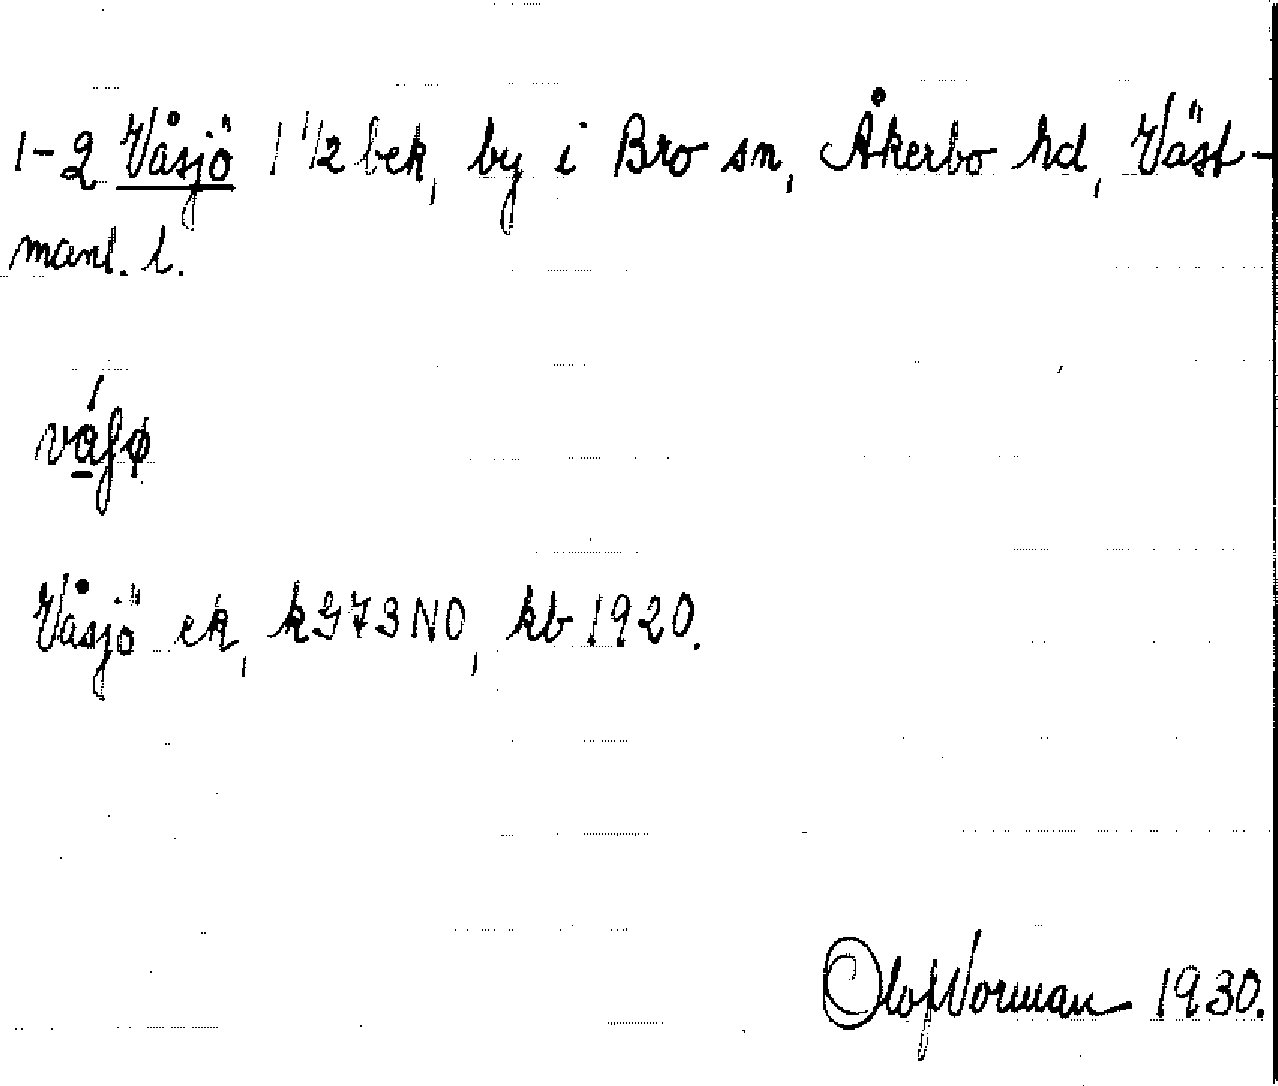 1-2 Våsjö 1 1/2 bek, by i Bro sn, Åkerbo hd, Väst-
manl. l.
Våsjö ek, k973NO, kb 1920.
Olof Norman 1930.